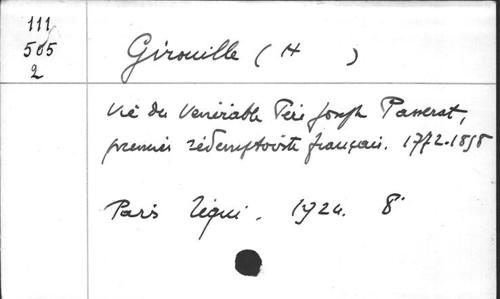 111
505
2
Girouille (H )
Vie du Vénérable Père Joseph Passerat,
premier rédemptoriste français. 1772-1858
Paris Téqui. 1924. 8°